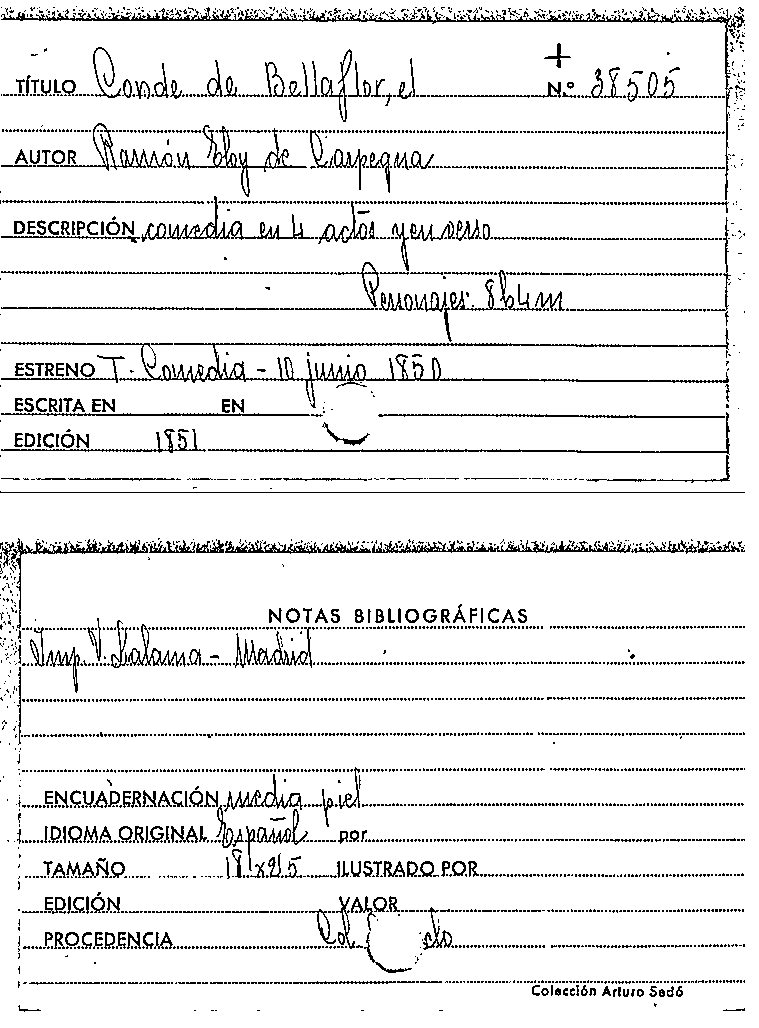 +
TÍTULO Conde de Bellaflor, el N.º 38505
AUTOR Ramón Eloy de Carpegna
DESCRIPCIÓN comedia en 4 actos y en verso
Personajes: 8h4m
ESTRENO T. Comedia - 10 junio 1850
ESCRITA EN EN
EDICIÓN 1851
NOTAS BIBLIOGRÁFICAS
Imp. V. Lalama - Madrid
ENCUADERNACIÓN media piel
IDIOMA ORIGINAL Español por
TAMAÑO ILUSTRADO POR
EDICIÓN VALOR
PROCEDENCIA Col.
Colección Arturo Sedó